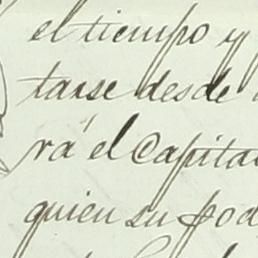 el tiempo y
tarse desde
rá el Capita
quien su pod